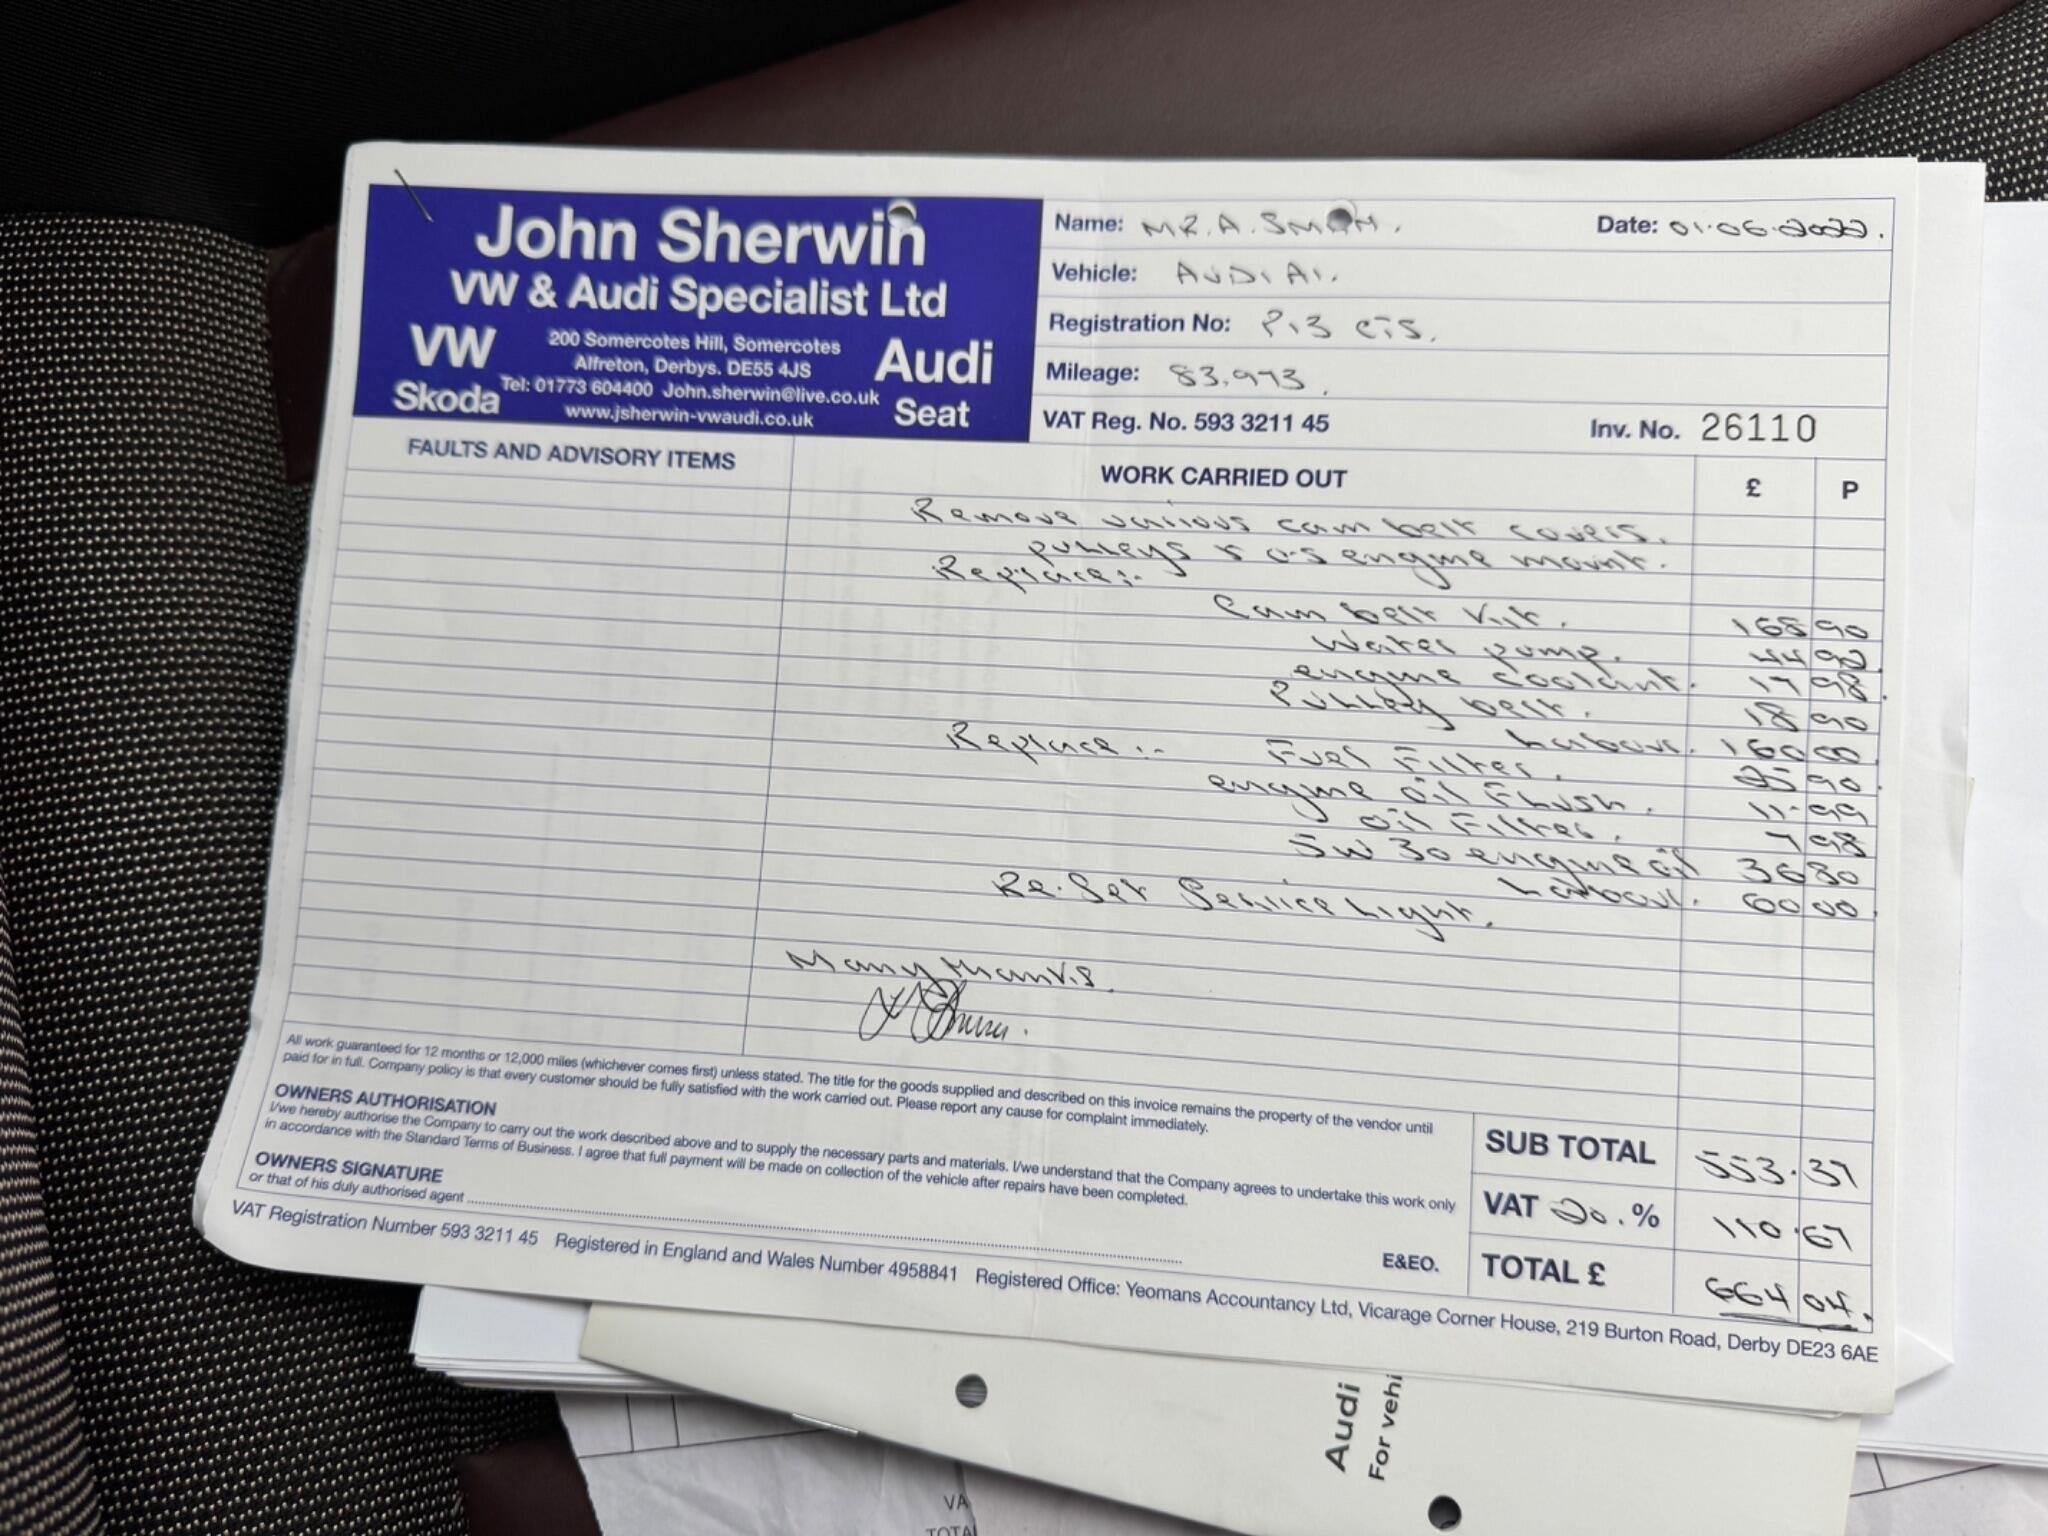 John Sherwin
VW & Audi Specialist Ltd
VW
Skoda
200 Somercotes Hill, Somercotes
Alfreton, Derbys. DE55 4JS
Tel: 01773 604400 John.sherwin@live.co.uk
www.jsherwin-vwaudi.co.uk
Audi
Seat
Name: MR. A. SM
Date: 01.06.2022.
Vehicle: AUDI A1.
Registration No: P13 CTS.
Mileage: 83,973.
VAT Reg. No. 593 3211 45
Inv. No. 26110
FAULTS AND ADVISORY ITEMS
WORK CARRIED OUT
£
P
Remove various cam belt covers.
pulleys & o-s engine mount.
Replace:-
Cam belt kit. 168 90
Water pump. 44 90
engine coolant. 17 98
Pulley belt. 18 90
Labour. 160 00
Replace:- Fuel Filter. 25 90
engine oil Flush. 11.99
oil Filter. 7 98
5w 30 engine oil 36 80
Labour. 60 00
Re.Set Service Light.
Many thanks.
All work guaranteed for 12 months or 12,000 miles (whichever comes first) unless stated. The title for the goods supplied and described on this invoice remains the property of the vendor until
paid for in full. Company policy is that every customer should be fully satisfied with the work carried out. Please report any cause for complaint immediately.
OWNERS AUTHORISATION
I/we hereby authorise the Company to carry out the work described above and to supply the necessary parts and materials. I/we understand that the Company agrees to undertake this work only
in accordance with the Standard Terms of Business. I agree that full payment will be made on collection of the vehicle after repairs have been completed.
OWNERS SIGNATURE
or that of his duly authorised agent
E&EO.
SUB TOTAL 553.37
VAT 20.% 110.67
TOTAL £ 664 04.
VAT Registration Number 593 3211 45 Registered in England and Wales Number 4958841 Registered Office: Yeomans Accountancy Ltd, Vicarage Corner House, 219 Burton Road, Derby DE23 6AE
Audi
For vehi
VA
TOTA